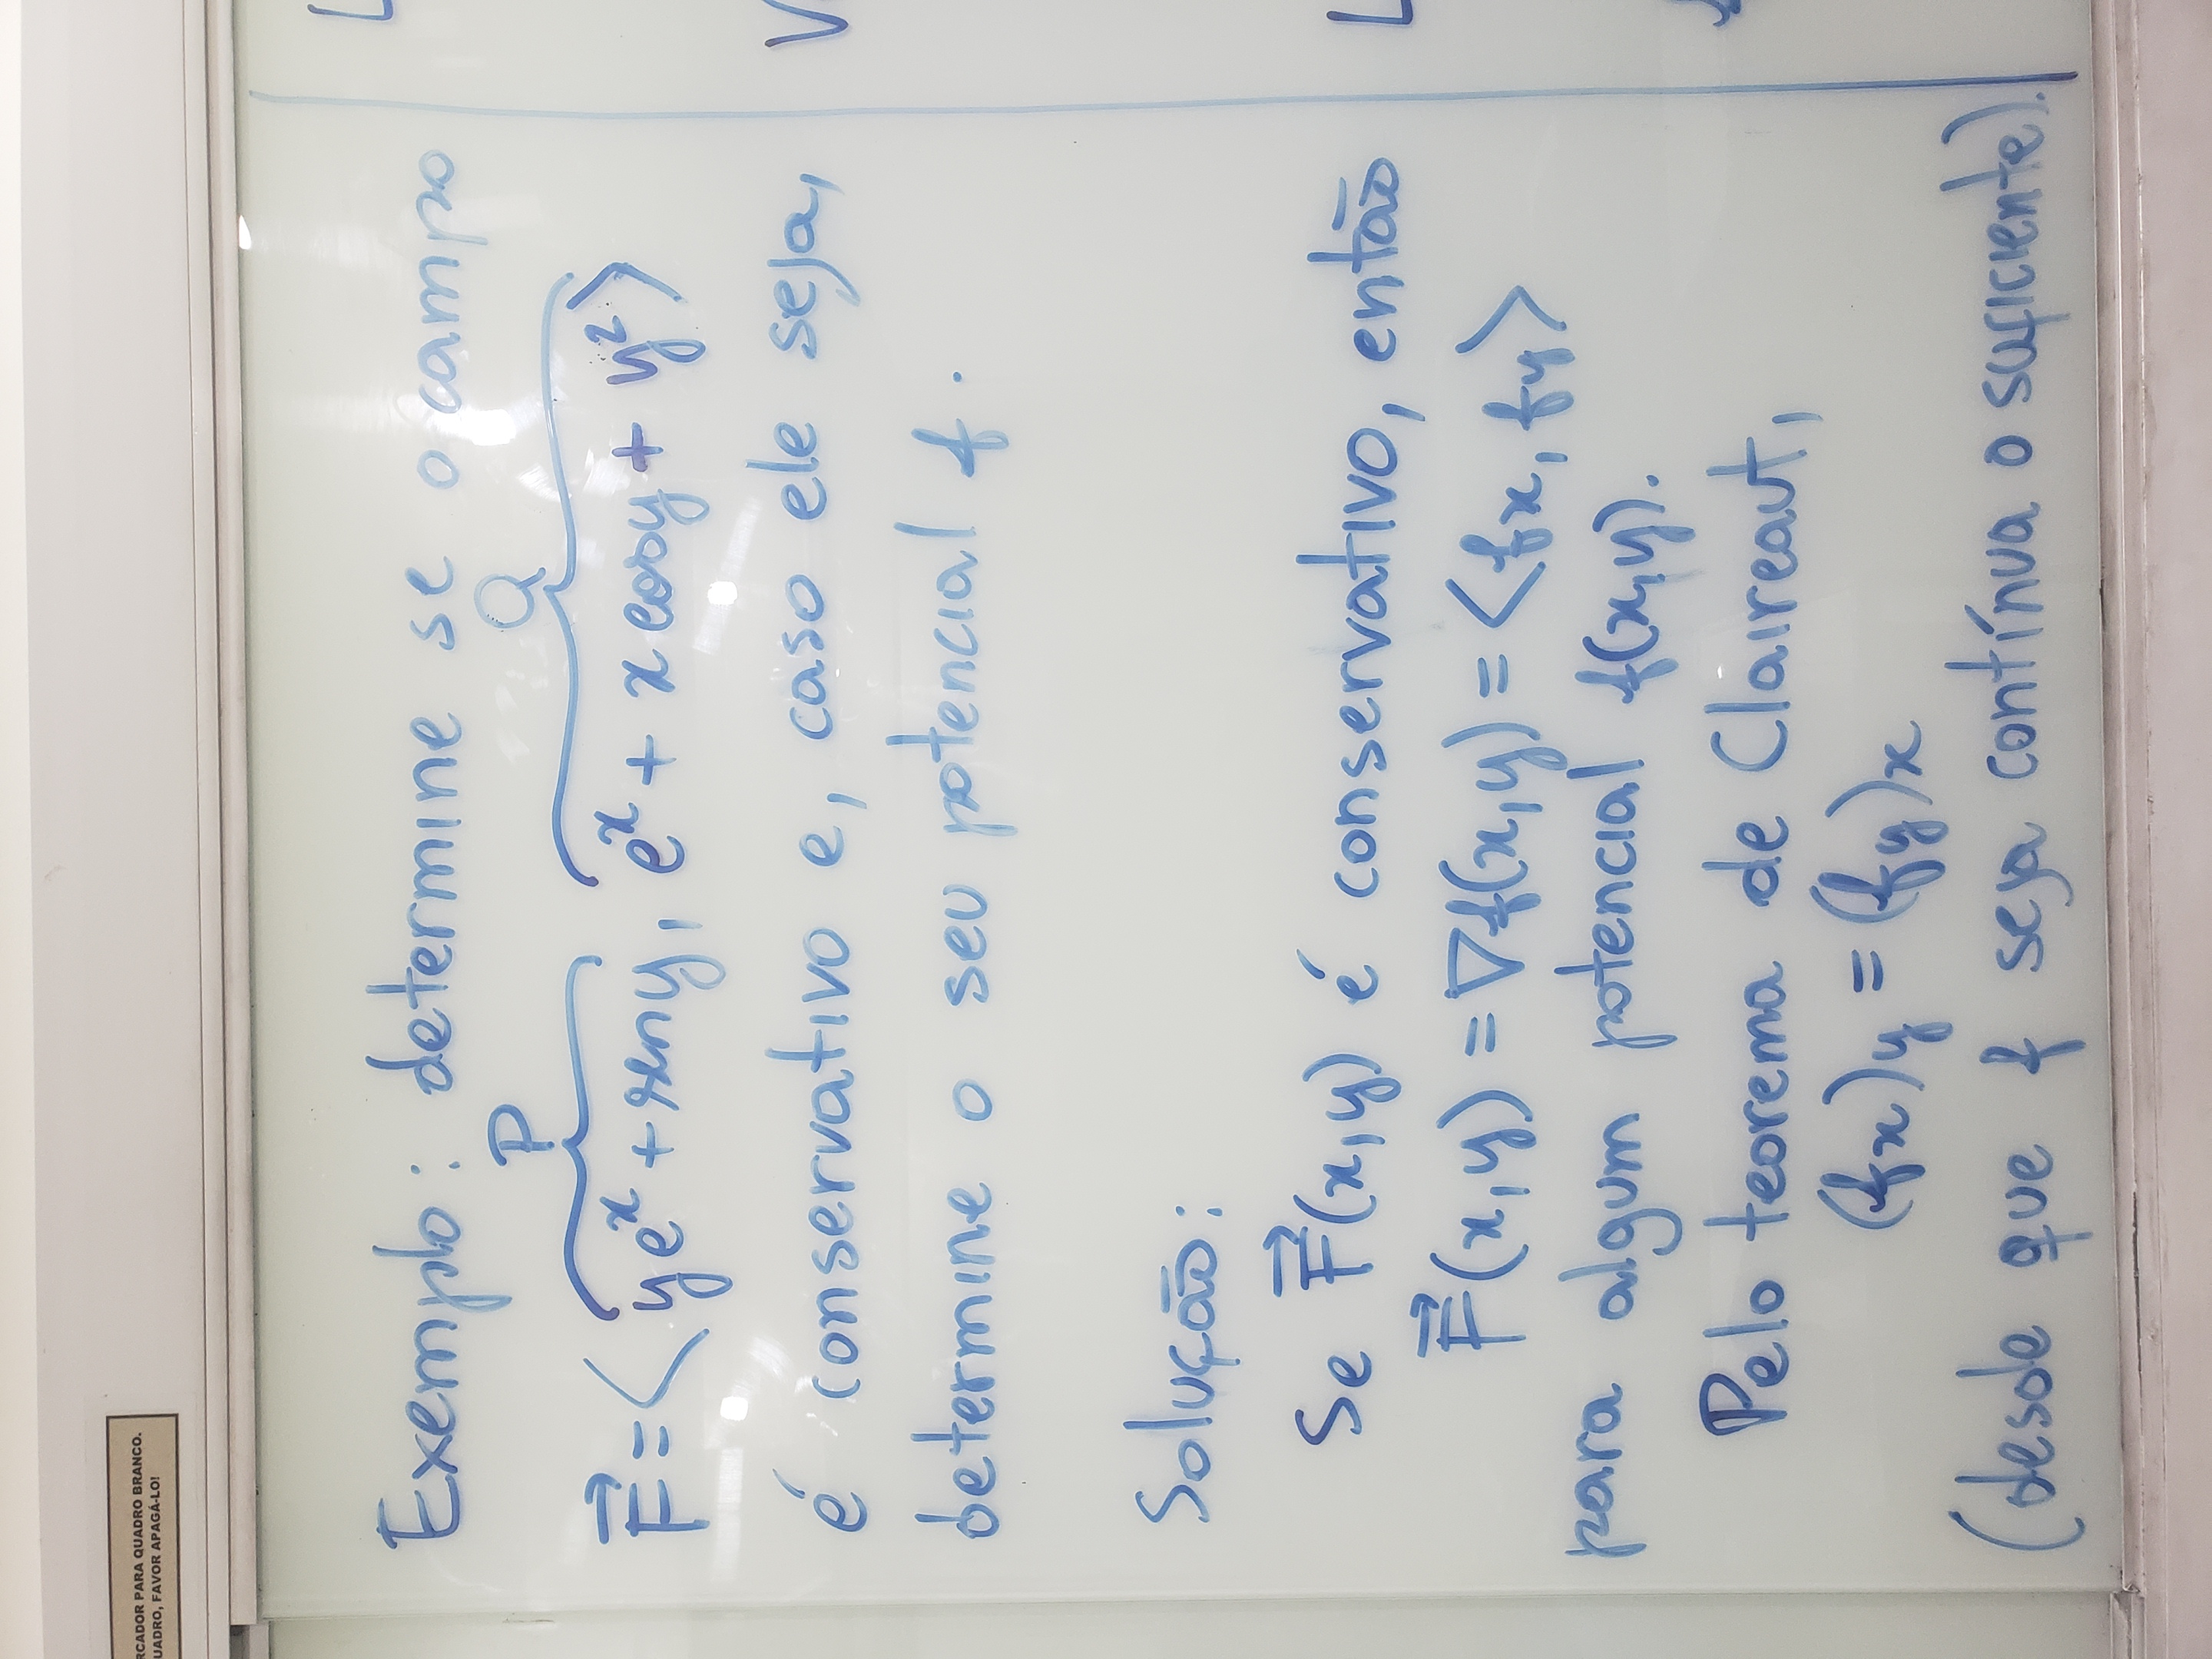 RCADOR PARA QUADRO BRANCO.
UADRO, FAVOR APAGÁ-LO!
Exemplo: determine se o campo
P Q
F⃗ = ⟨ yeˣ + sen y, eˣ + x cos y + y² ⟩
é conservativo e, caso ele seja,
determine o seu potencial f.
Solução:
Se F⃗(x,y) é conservativo, então
F⃗(x,y) = ∇f(x,y) = ⟨fx, fy⟩
para algum potencial f(x,y).
Pelo teorema de Claireaut,
(fx)y = (fy)x
(desde que f seja contínua o suficiente).